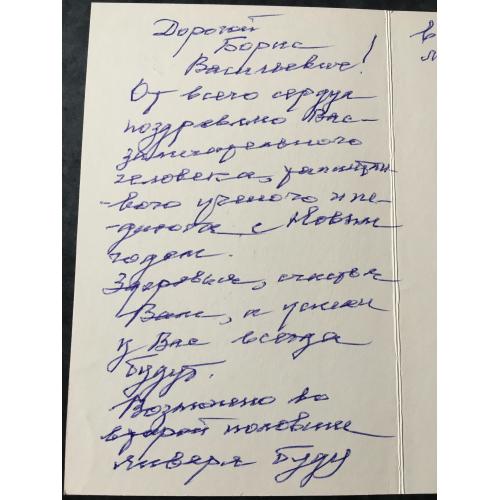 Дорогой
Борис
Васильевич!
От всего сердца
поздравляю Вас-
замечательного
человека, талантли-
-вого ученого и пе-
-дагога с Новым
годом.
Здоровья, счастья
Вам, а успехи
у Вас всегда
будут.
Возможно во
второй половине
января буду
в